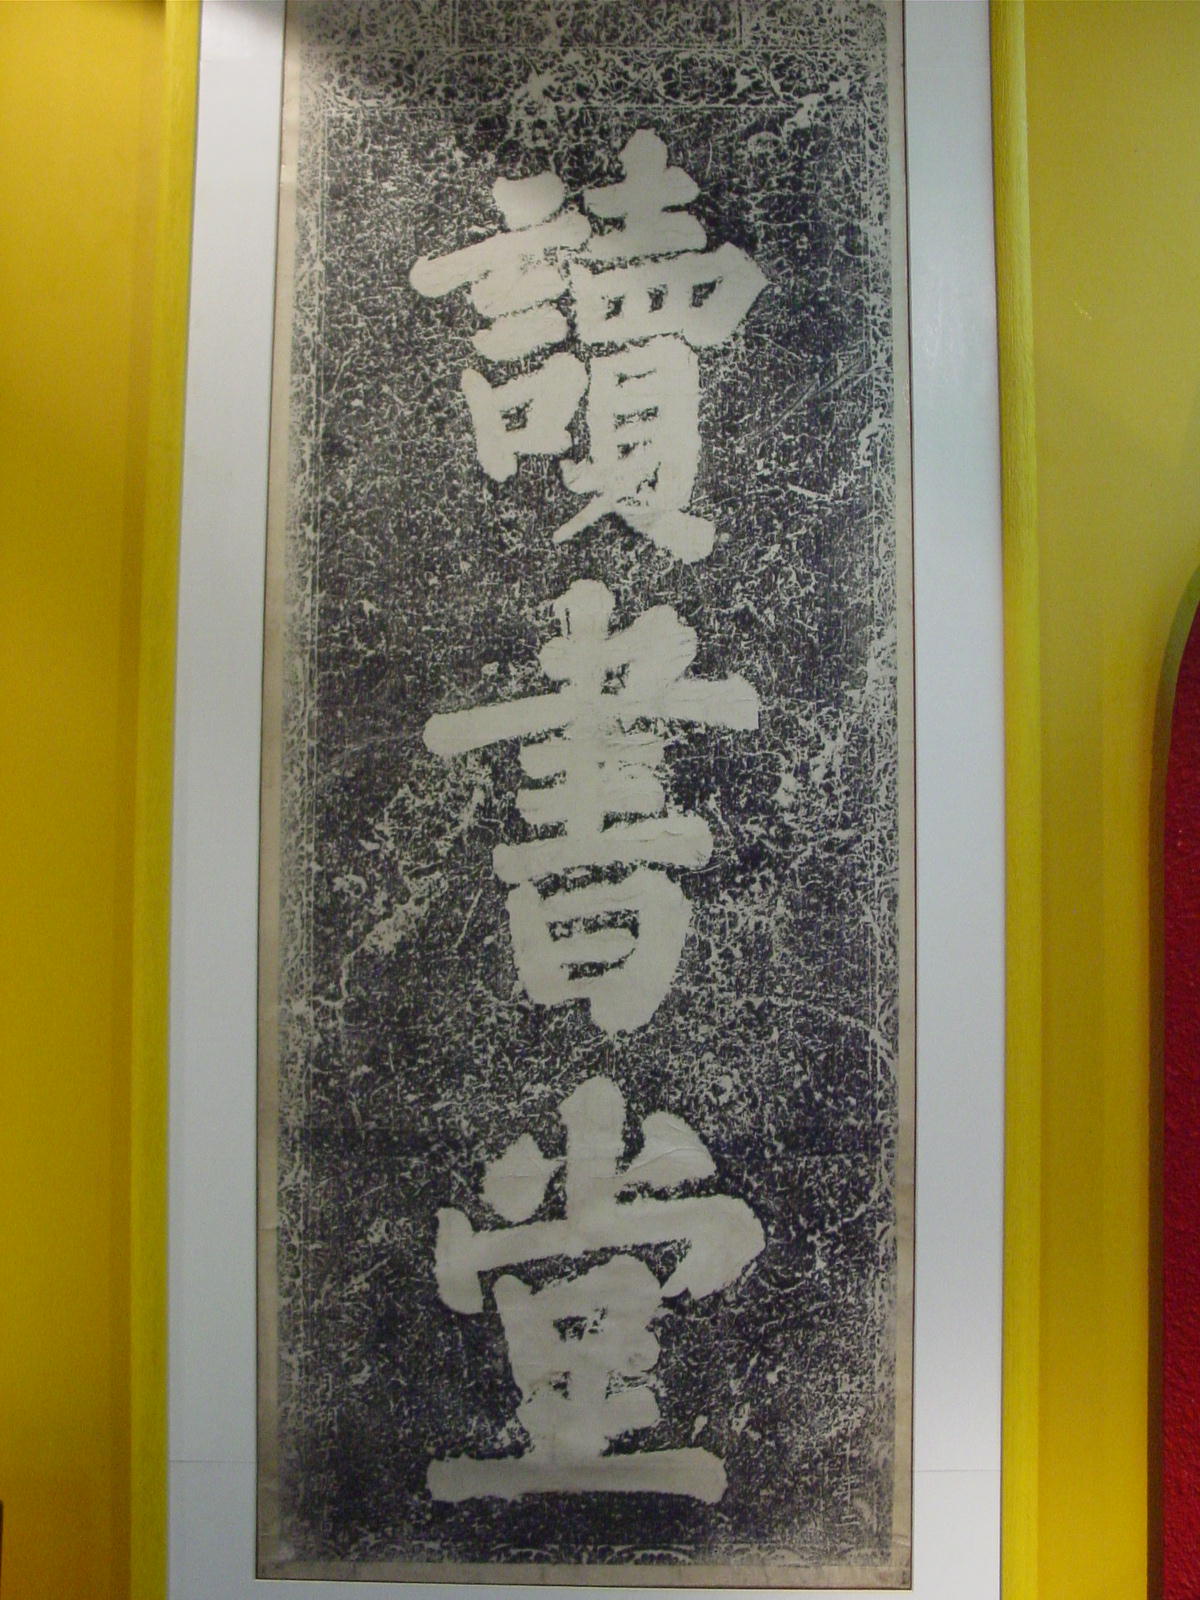 讀書堂